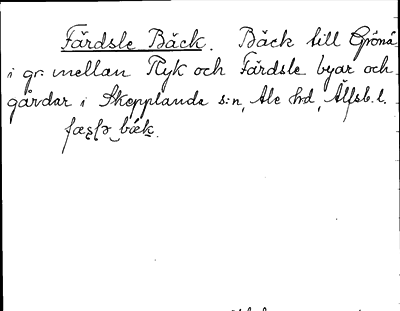 Färdsle Bäck. Bäck till Gröná
i gr. mellan Ryk och Färdsle byar och
gårdar i Skepplanda s:n, Ale hd, Älfsb. l.